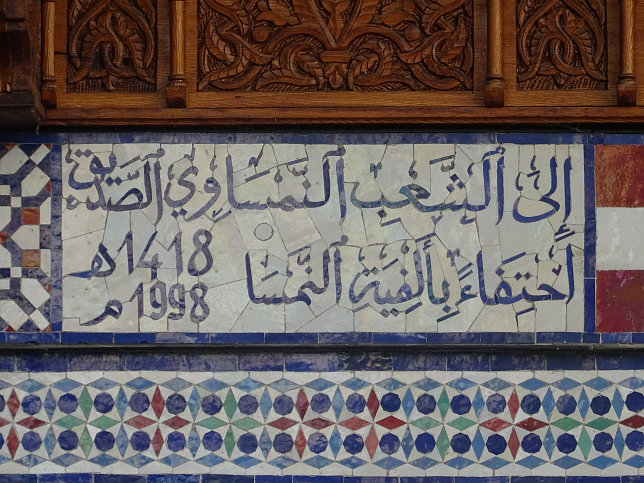 إِلَى الشَّعْبِ النَّمْسَاوِي الصَّدِيق
احْتِفَاءً بِأَلْفِيَّةِ النَّمْسَا
1418 هـ
1998 م